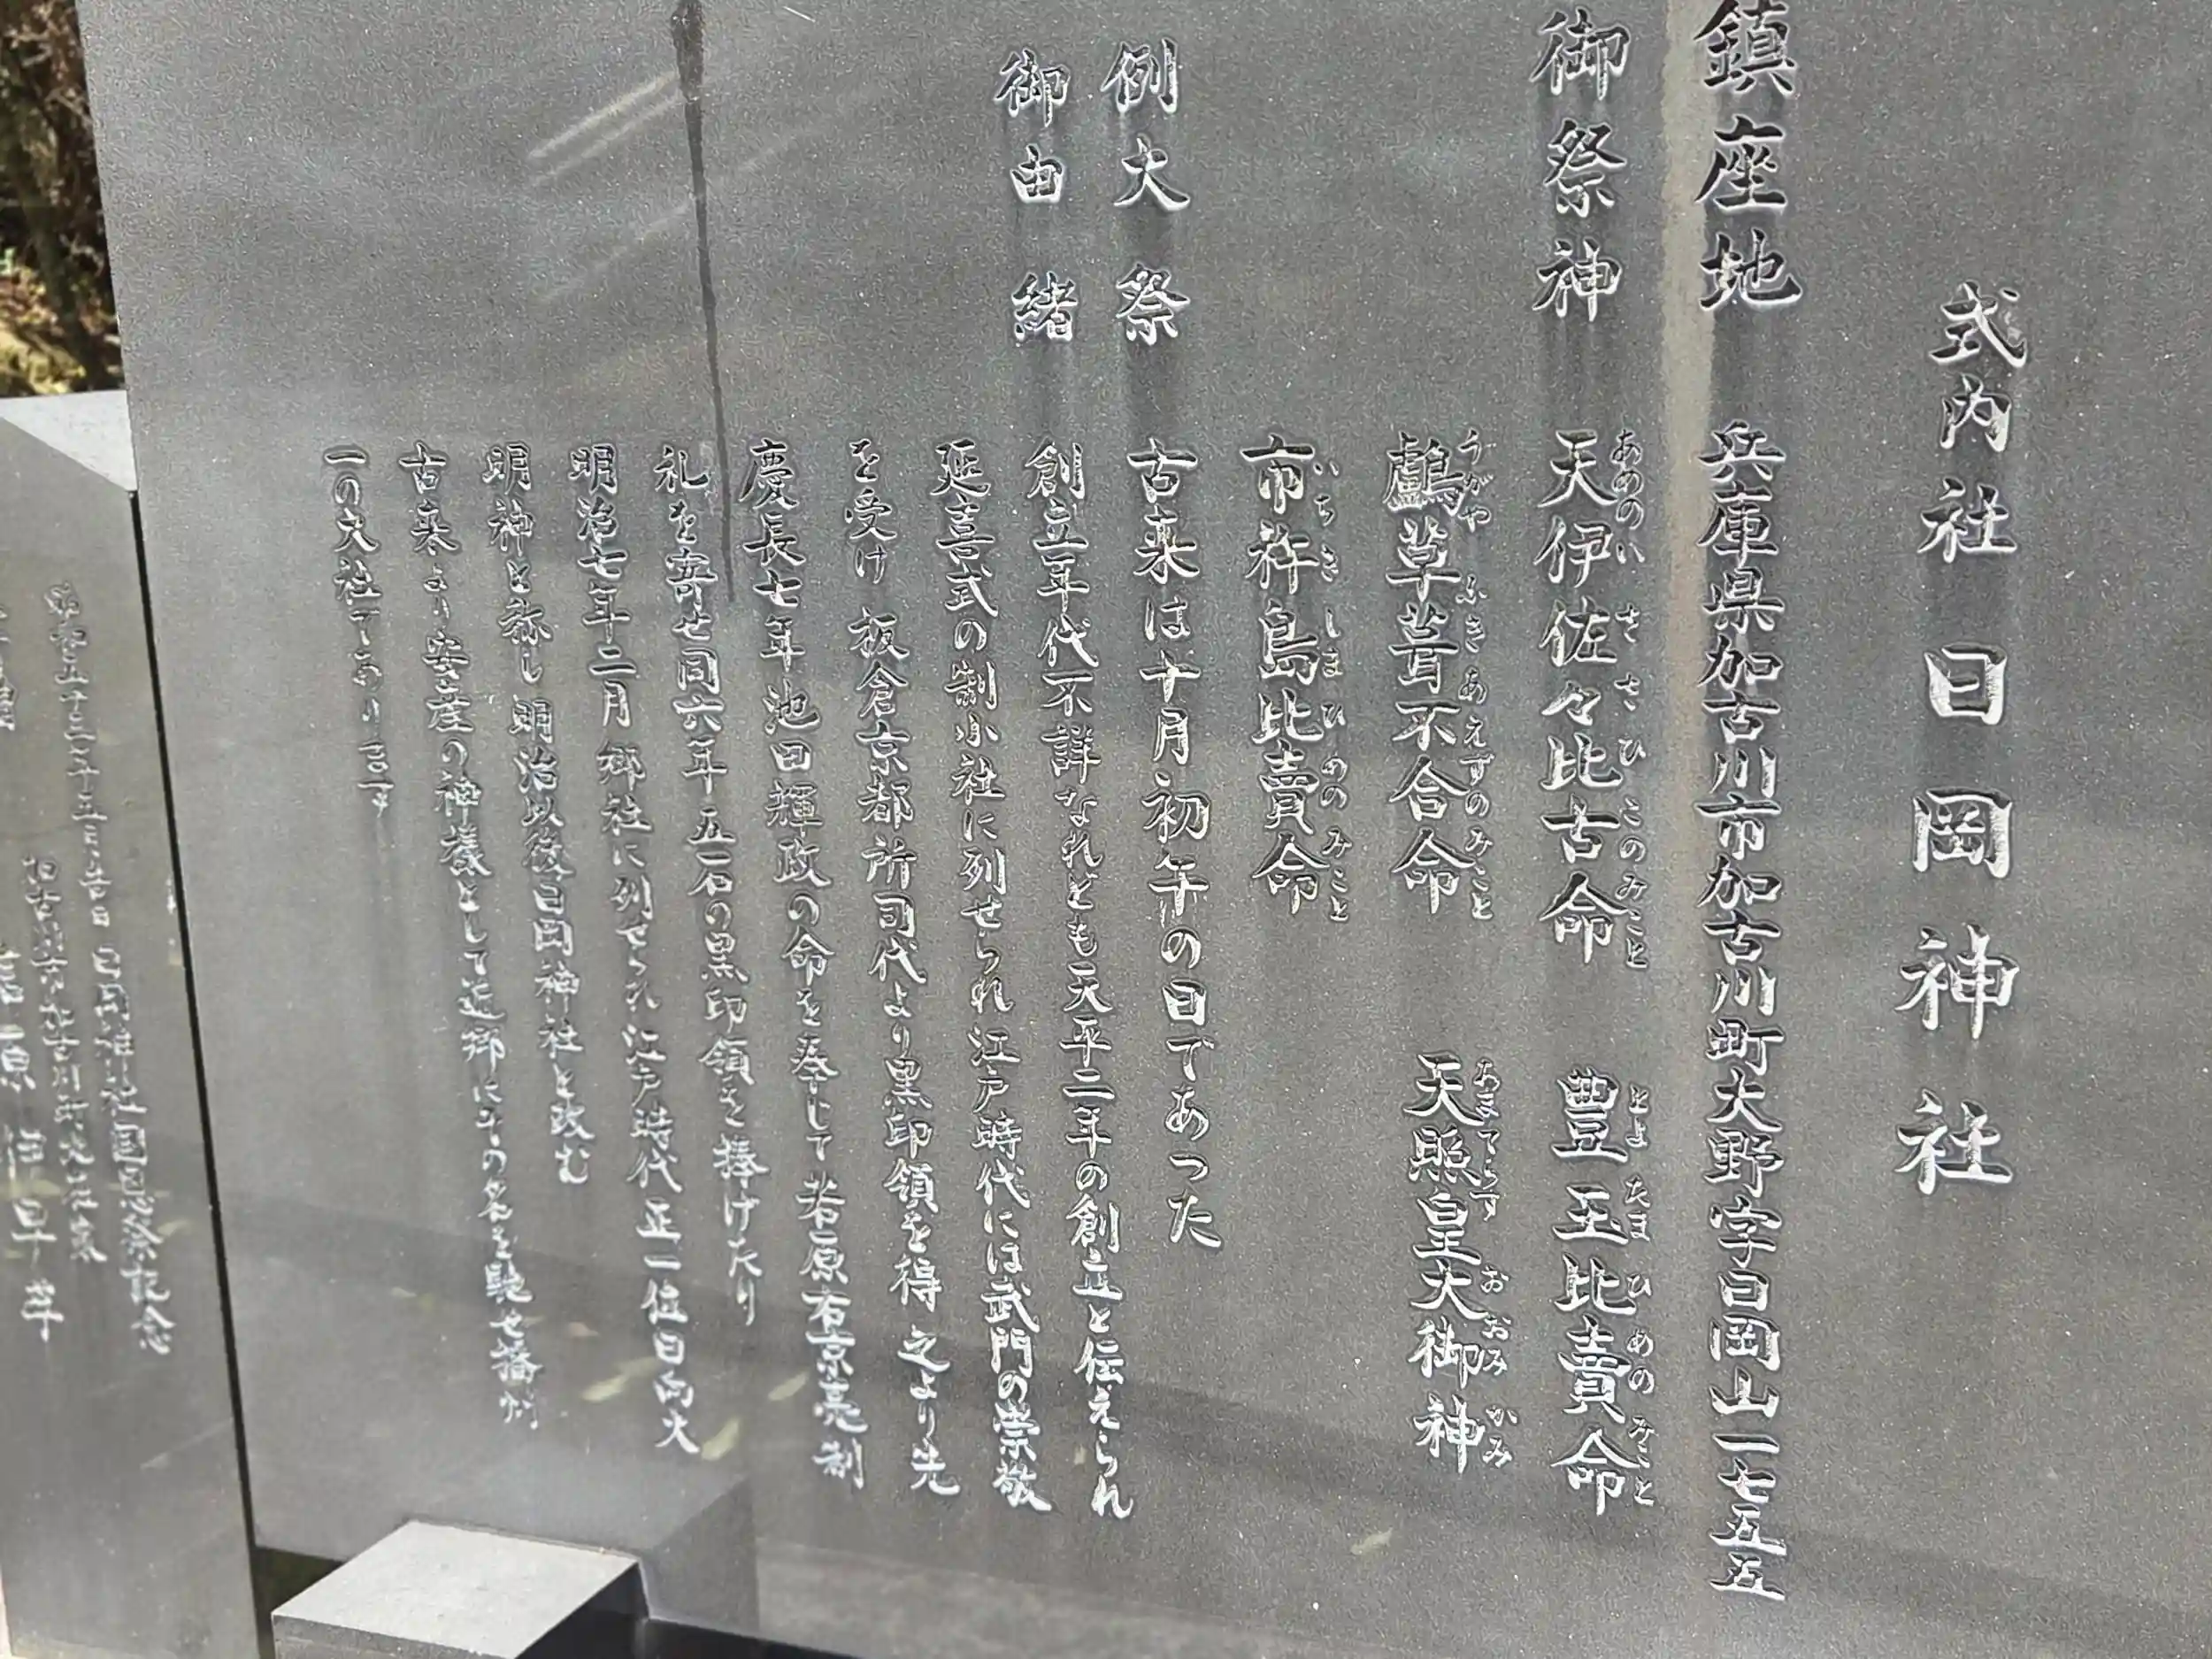 式内社 日岡神社
鎮座地 兵庫県加古川市加古川町大野字日岡山一七五五
御祭神 天伊佐々比古命 豊玉比賣命
あめのいささひこのみこと とよたまひめのみこと
鸕草葺不合命 天照皇大御神
うがやふきあえずのみこと あまてらすおおみかみ
市杵島比賣命
いちきしまひめのみこと
例大祭 古来は十月初午の日であった
御由緒 創立年代不詳なれども天平二年の創立と伝えられ
延喜式の制小社に列せられ江戸時代には武門の崇敬
を受け 板倉京都所司代より黒印領を得 之より先
慶長七年池田輝政の命を奉じて若原右京亮制
礼を寄せ同六年 五石の黒印領を捧げたり
明治七年二月 郷社に列せられ江戸時代正一位日向大
明神と称し 明治以後日岡神社と改む
古来より安産の神様として近郷にその名を馳せ播州
一の大社であります